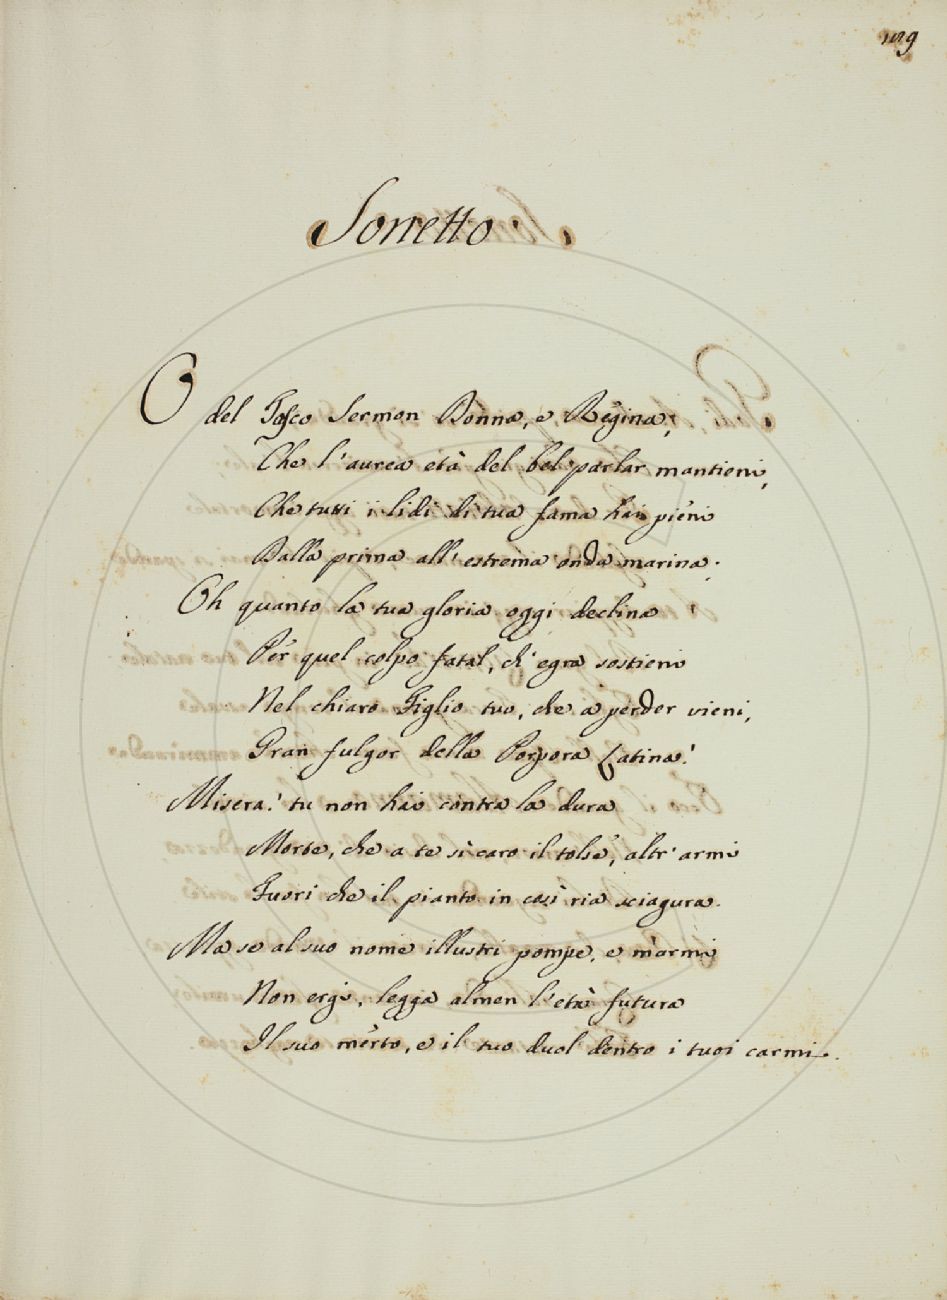 Sonetto.
O del Tosco Sermon Donna, e Regina,
Che l'aurea età del bel parlar mantieni,
Che tutti i lidi di tua fama hai pieni
Dalla prima all'estrema onda marina.
Oh quanto la tua gloria oggi declina
Per quel colpo fatal, ch'egra sostieni
Nel chiaro Figlio tuo, che a perder vieni,
Gran fulgor della Porpora Latina!
Misera! tu non hai contra la dura
Morte, che a te sì caro il tolse, altr'armi
Fuori che il pianto in così ria sciagura.
Ma se al suo nome illustri pompe, e marmi
Non ergi, legga almen l'età futura
Il suo merto, e il tuo duol dentro i tuoi carmi.